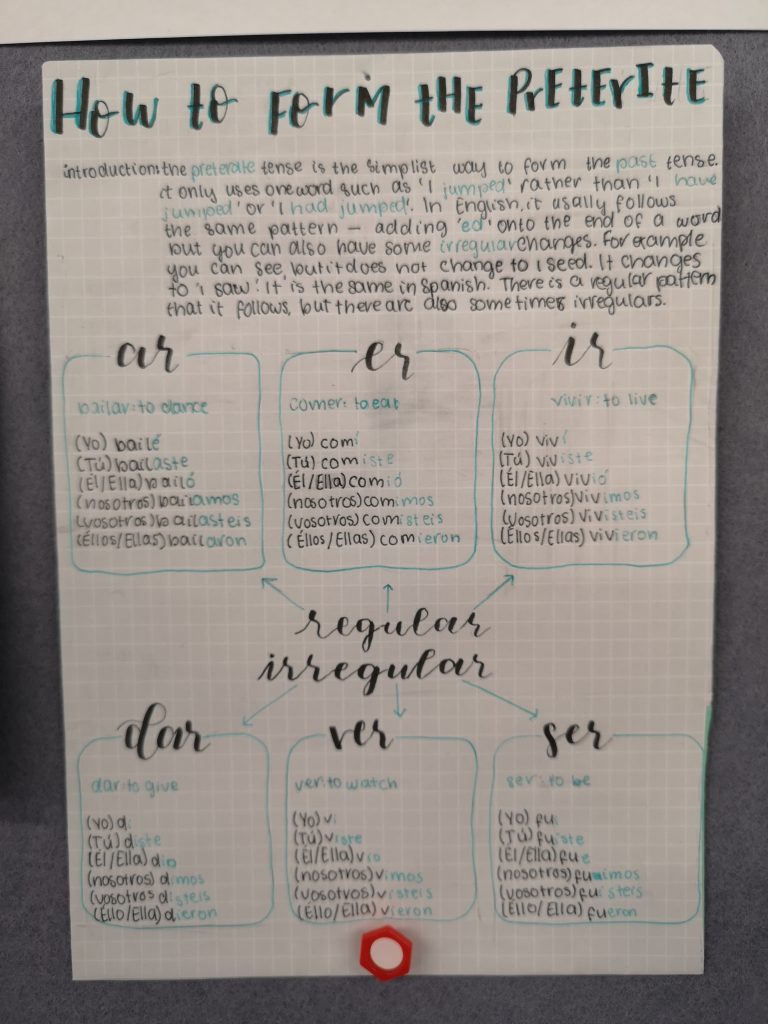 How to Form the Preterite
introduction: the preterate tense is the simplist way to form the past tense.
it only uses one word such as 'I jumped' rather than 'I have
jumped' or 'I had jumped'. In English, it usally follows
the same pattern – adding 'ed' onto the end of a word
but you can also have some irregular changes. For example
you can see, but it does not change to I seed. It changes
to 'I saw'. It is the same in Spanish. There is a regular pattern
that it follows, but there are also sometimes irregulars.
ar
bailar: to dance
(Yo) bailé
(Tú) bailaste
(Él/Ella) bailó
(nosotros) bailamos
(vosotros) bailasteis
(Éllos/Ellas) bailaron
er
comer: to eat
(Yo) comí
(Tú) comiste
(Él/Ella) comió
(nosotros) comimos
(vosotros) comisteis
(Éllos/Ellas) comieron
ir
vivir: to live
(Yo) viví
(Tú) viviste
(Él/Ella) vivió
(nosotros) vivimos
(vosotros) vivisteis
(Éllos/Ellas) vivieron
regular
irregular
dar
dar: to give
(Yo) di
(Tú) diste
(Él/Ella) dio
(nosotros) dimos
(vosotros disteis
(Éllo/Ella) dieron
ver
ver: to watch
(Yo) vi
(Tú) viste
(Él/Ella) vio
(nosotros) vimos
(vosotros) visteis
(Éllo/Ella) vieron
ser
ser: to be
(Yo) fui
(Tú) fuiste
(Él/Ella) fue
(nosotros) fuimos
(vosotros) fuisteis
(Éllo/Ella) fueron